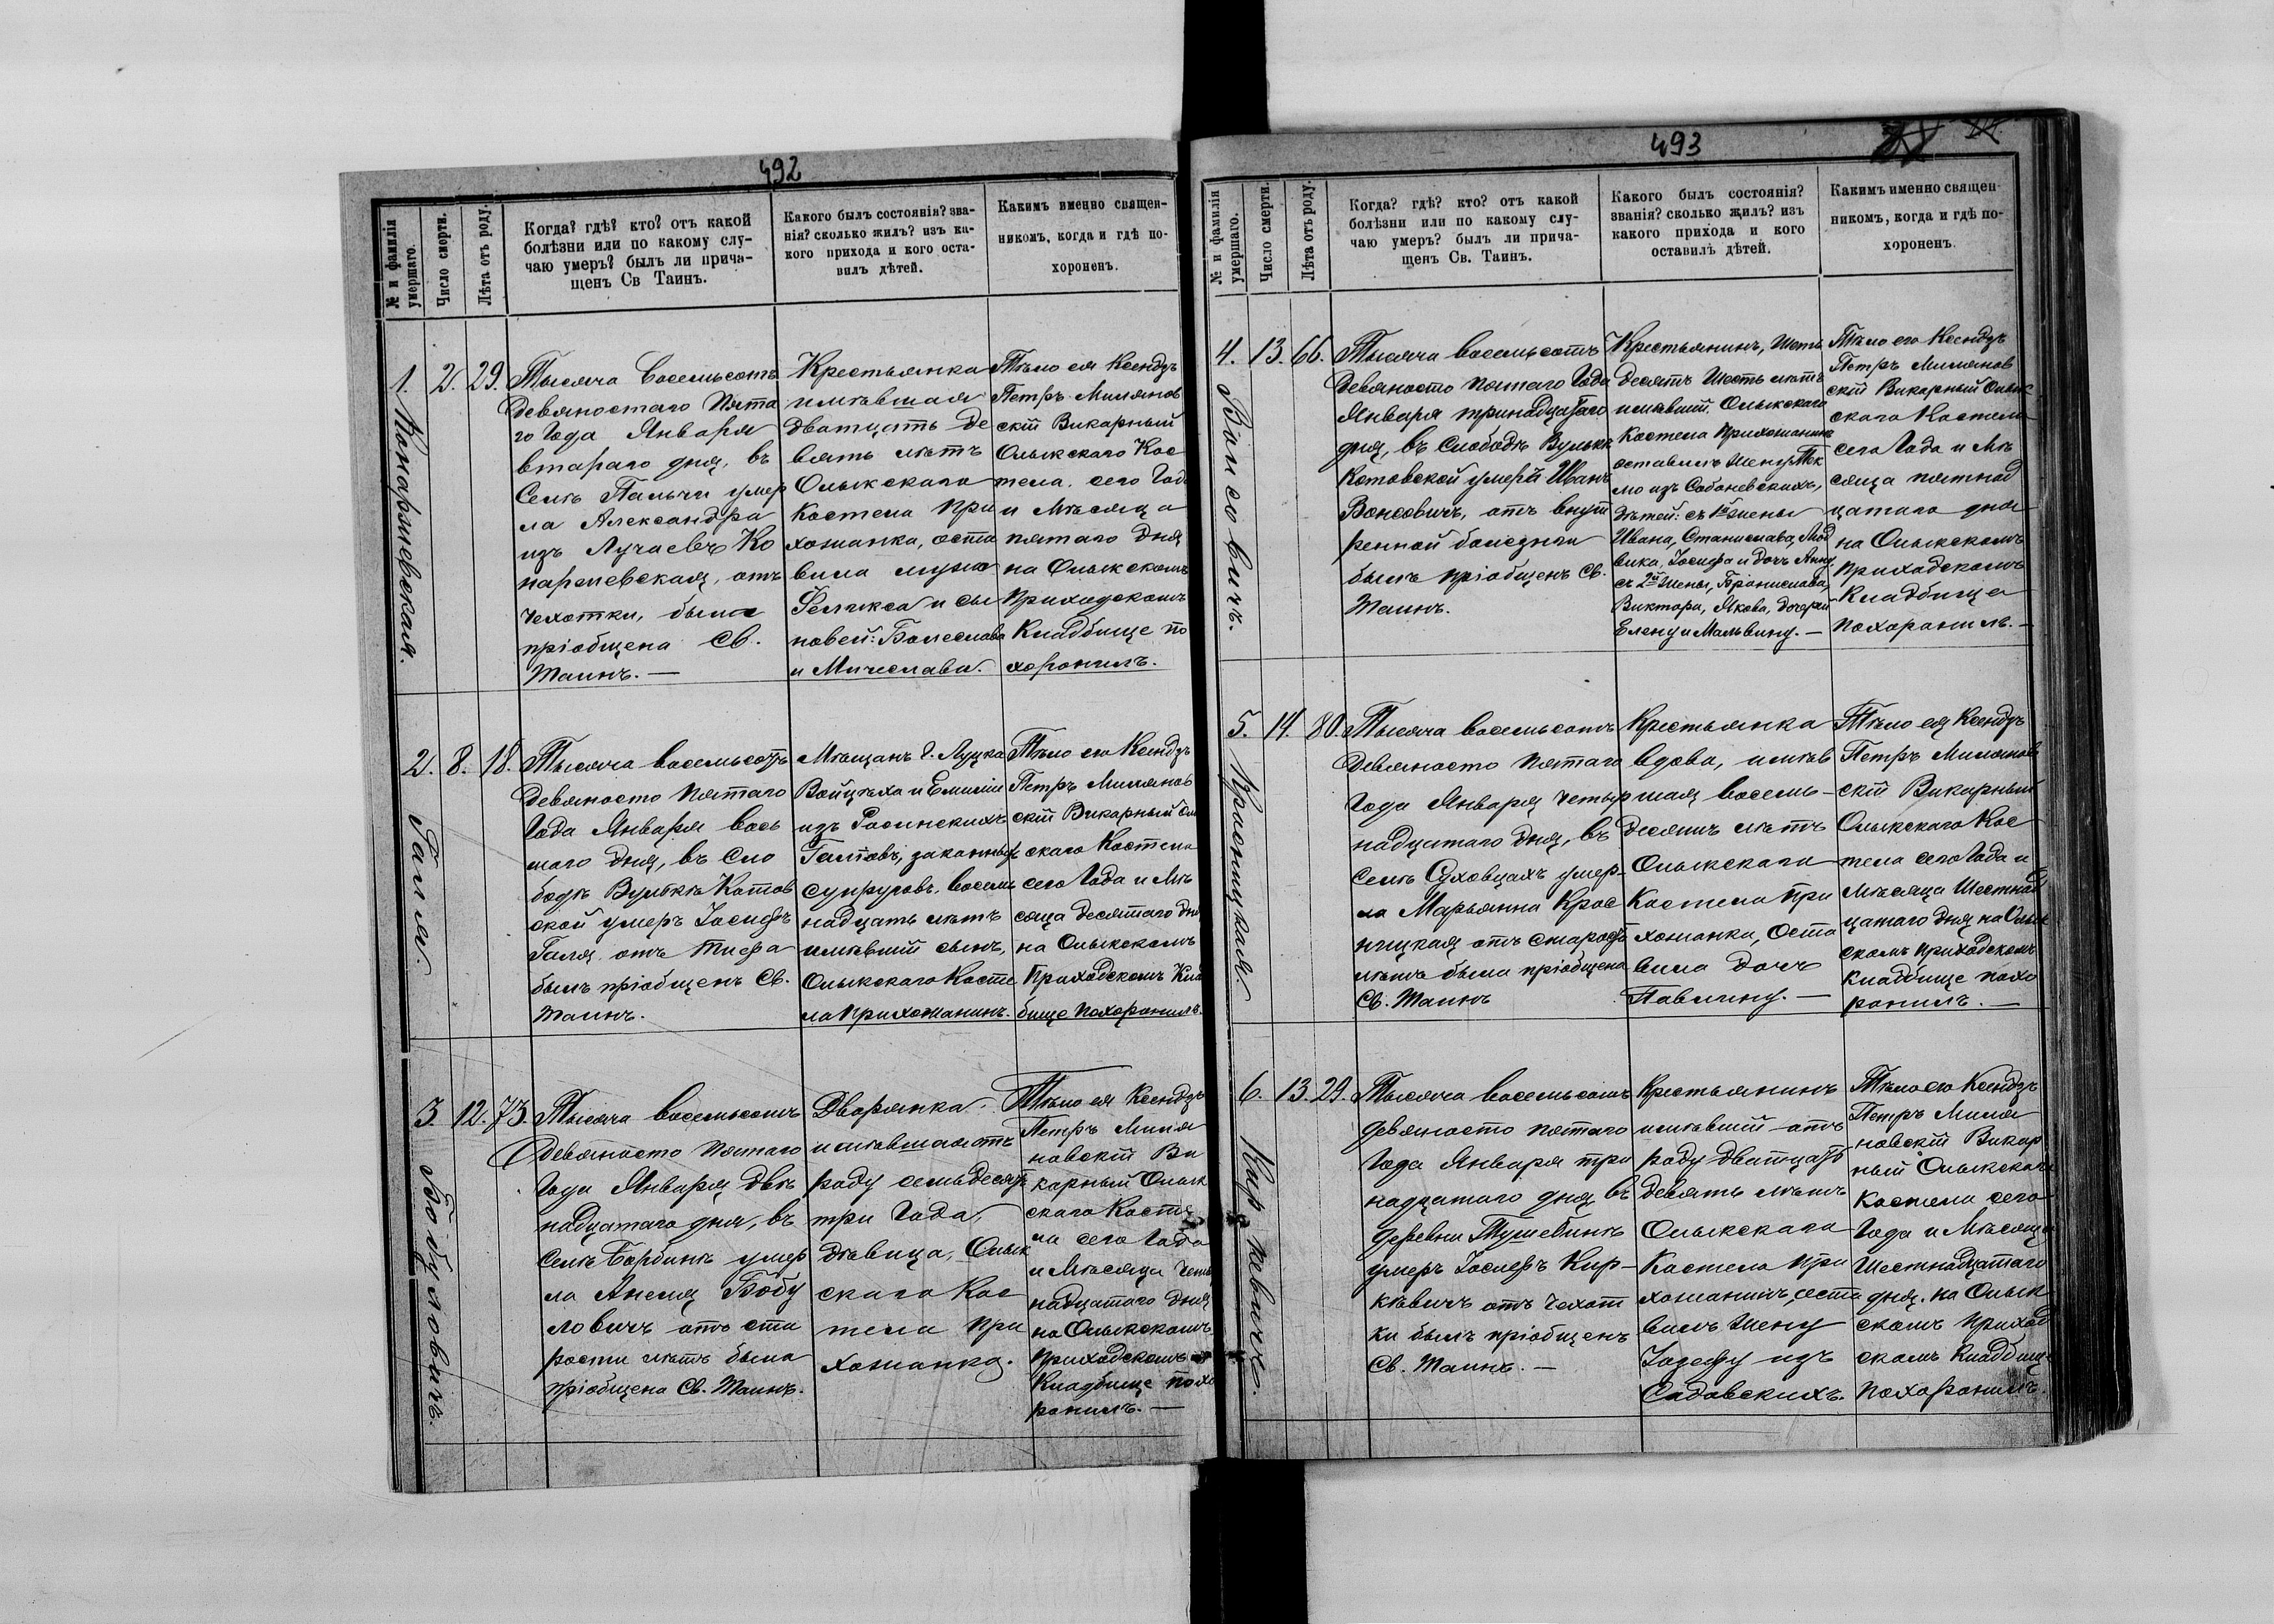 492
№ и фамилія
умершаго.
Число смерти.
Лѣта отъ роду.
Когда? гдѣ? кто? отъ какой
болѣзни или по какому слу-
чаю умеръ? былъ ли прича-
щенъ Св Таинъ.
Какого былъ состоянія? зва-
нія? сколько жилъ? изъ ка-
кого прихода и кого оста-
вилъ дѣтей.
Какимъ именно священ-
никомъ, когда и гдѣ по-
хороненъ.
1.
Конаржевская.
2.
29.
Тысяча восемьсотъ
девяностаго пята
го Года Января
втараго дня, въ
Селѣ Пальчи умер
ла Александра
изъ Лучаевъ Ко
наржевская, отъ
чехотки, была
пріобщена Св.
Таинъ. —
Крестьянка
имѣвшая
дватцать де
вять лѣтъ
Олыкскаго
Костела При
хожанка, оста
вила мужа
Феликса и сы
новей: Болеслава
и Мичеслава.
Тѣло ея Ксендзъ
Петръ Милянов
скій Викарный
Олыкскаго Кос
тела. сего Года
и Мѣсяца
пятаго дня
на Олыкскомъ
Приходскомъ
Кладбище по
хоронилъ.
2.
Галля.
8.
18.
Тысяча восемьсотъ
девяносто пятаго
Года Января вось
маго дня, въ Сло
бодѣ Вулькѣ Котов
ской умеръ Іосифъ
Галя отъ тифа
былъ пріобщенъ Св.
Таинъ.
Мѣщанъ г. Луцка
Войцѣха и Емиліи
изъ Росинскихъ
Галловъ, законныхъ
супруговъ, восемь
надцать лѣтъ
имѣвшій сынъ,
Олыкскаго Косте
ла Прихожанинъ.
Тѣло его Ксендзъ
Петръ Милянов
скій Викарный Олы
скаго Костела
сего Года и Мѣ
сяца десятаго дня
на Олыкскомъ
Приходскомъ Клад
бище похоронилъ.
3.
Бобуловичъ.
12.
73.
Тысяча восемьсотъ
девяносто пятаго
Года Января двѣ
надцатаго дня, въ
Селѣ Борбинѣ умер
ла Анеля Бобу
ловичъ отъ ста
рости лѣтъ была
пріобщена Св. Таинъ.
Дворянка
имѣвшая отъ
роду семьдесятъ
три Года,
дѣвица, Олык
скаго Кос
тела При
хожанка.
Тѣло ея Ксендзъ
Петръ Миля
новскій Ви
карный Олык
скаго Косте
ла сего Года
и Мѣсяца четыр
надцатаго дня
на Олыкскомъ
приходскомъ
Кладбище похо
ронилъ. —
493
№ и фамилія
умершаго.
Число смерти.
Лѣта отъ роду.
Когда? гдѣ? кто? отъ какой
болѣзни или по какому слу-
чаю умеръ? былъ ли прича-
щенъ Св. Таинъ.
Какого былъ состоянія?
званія? сколько жилъ? изъ
какого прихода и кого
оставилъ дѣтей.
Какимъ именно священ-
никомъ, когда и гдѣ по-
хороненъ.
4.
Вонсовичъ.
13.
66.
Тысяча восемьсотъ
девяносто пятаго Года
Января тринадцатаго
дня, въ Слободѣ Вулькѣ
Котовской умеръ Иванъ
Вонсовичъ, отъ внут
ренной болезни
былъ пріобщенъ Св.
Таинъ.
Крестьянинъ, Шесть
десятъ Шесть лѣтъ
имѣвшій. Олыкскаго
Костела Прихожанинъ
оставилъ жену Тек
лю изъ Собоневскихъ,
дѣтей: съ 1й жены
Ивана, Станислава, Люд
вика, Іосифа и дочь Анну
съ 2й жены, Брониславa,
Виктора, Якова, дочерей
Елену и Мальвину. —
Тѣло его Ксендзъ
Петръ Милянов
скій Викарный Олык
скаго Костела
сего Года и Мѣ
сяца пятнад
цатаго дня
на Олыкскомъ
приходскомъ
Кладбище
похоронилъ. —
5.
Красницкая.
14.
80.
Тысяча восемьсотъ
девяносто пятаго
Года Января четыр
надцатаго дня, въ
Селѣ Суховцахъ умер-
ла Марьянна Крас
ницкая отъ старости
лѣтъ была пріобщена
Св. Таинъ
Крестьянка
вдова, имѣв
шая восемь-
десятъ лѣтъ
Олыкскаго
Костела При
хожанки, Оста
вила дочь
Павлину. —
Тѣло ея Ксендзъ
Петръ Милянов
скій Викарный
Олыкскаго Кос
тела сего Года и
Мѣсяца Шестнад
цатаго дня на Олык
скомъ приходскомъ
кладбище похо
ронилъ. —
6.
Киркевичъ.
13.
29.
Тысяча восемьсотъ
девяносто пятаго
Года Января три
надцатаго дня въ
деревни Тушебинѣ
умеръ Іосифъ Кир-
кѣвичъ отъ чехот
ки былъ пріобщенъ
Св. Таинъ. —
Крестьянинъ
имѣвшій отъ
роду двадцать
девять лѣтъ
Олыкскаго
Костела При
хожанинъ, оста
вилъ жену
Іозефу изъ
Садовскихъ.
Тѣло его Ксендзъ
Петръ Миля
новскій Викар
ный Олыкскаго
Костела сего
Года и Мѣсяца
Шестнадцатаго
дня. на Олык
скомъ приход
скомъ кладбище
похоронилъ.